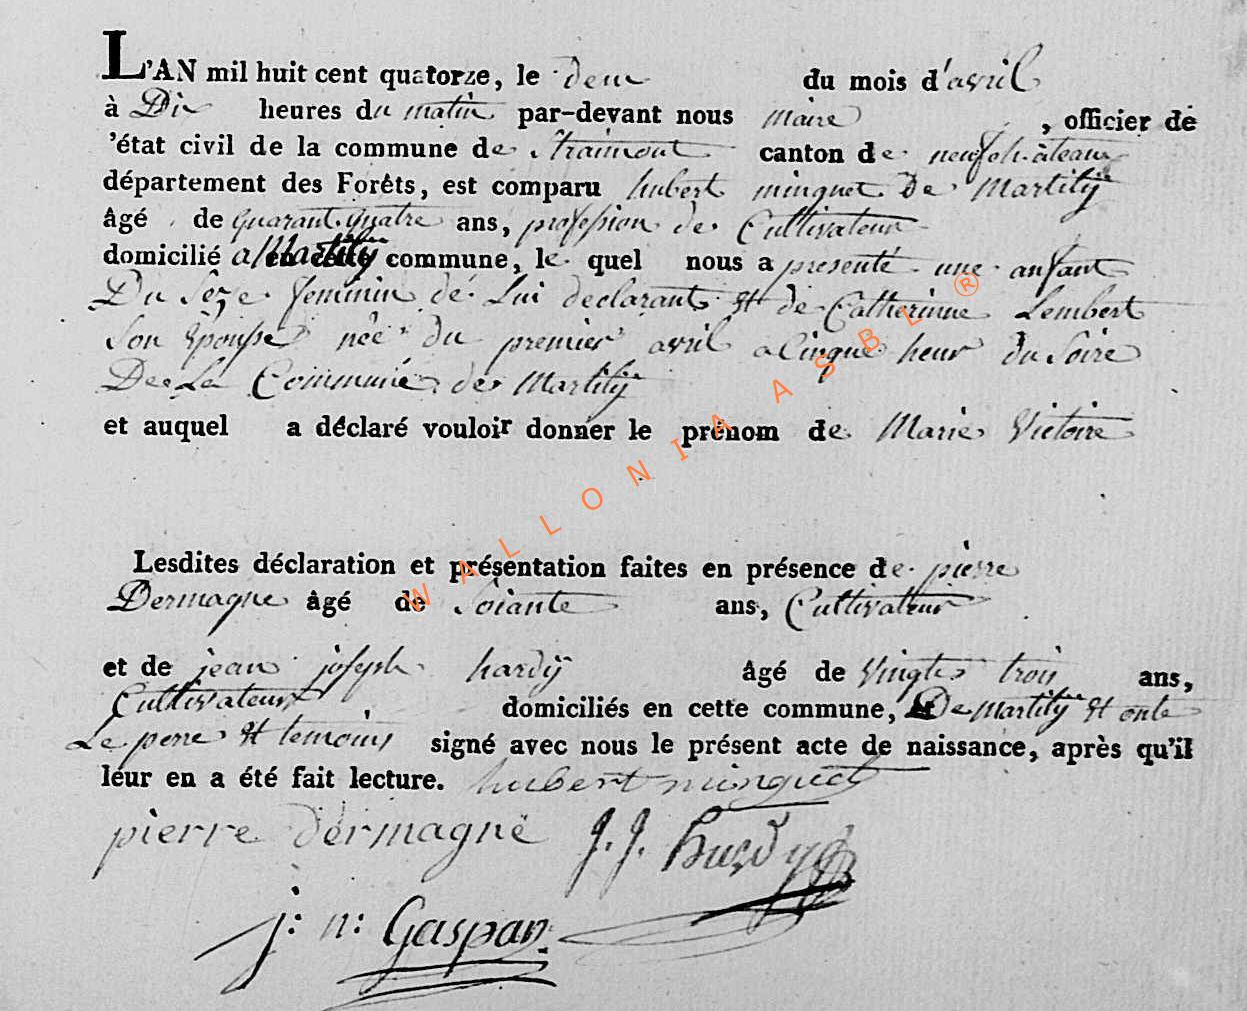 L'AN mil huit cent quatorze, le deux du mois d'avril
à Dix heures du matin par-devant nous maire , officier de
'état civil de la commune de Straimont canton de neufchâteaux
département des Forêts, est comparu hubert minguet De Martilÿ
âgé de quarant quatre ans, profession de Cultivateur
domicilié a Martilÿ en cette commune, le quel nous a presenté une anfant
Du Sexe feminin de Lui declarant et de Catherinne Lembert
Son Epouse née du premier avril a Cinque heur du Soire
De La Commune de Martilÿ
et auquel a déclaré vouloir donner le prénom de Marie Victoire
Lesdites déclaration et présentation faites en présence de pierre
Dermagne âgé de Soiante ans, Cultivateur
et de jean joseph hardÿ âgé de Vingt trois ans,
Cultivateur domiciliés en cette commune, De Martilÿ et onte
Le pere et temoins signé avec nous le présent acte de naissance, après qu'il
leur en a été fait lecture. hubert minguet
pierre dermagne J. J. hardy
j: n: Gaspar
WALLONIA ASBL ®